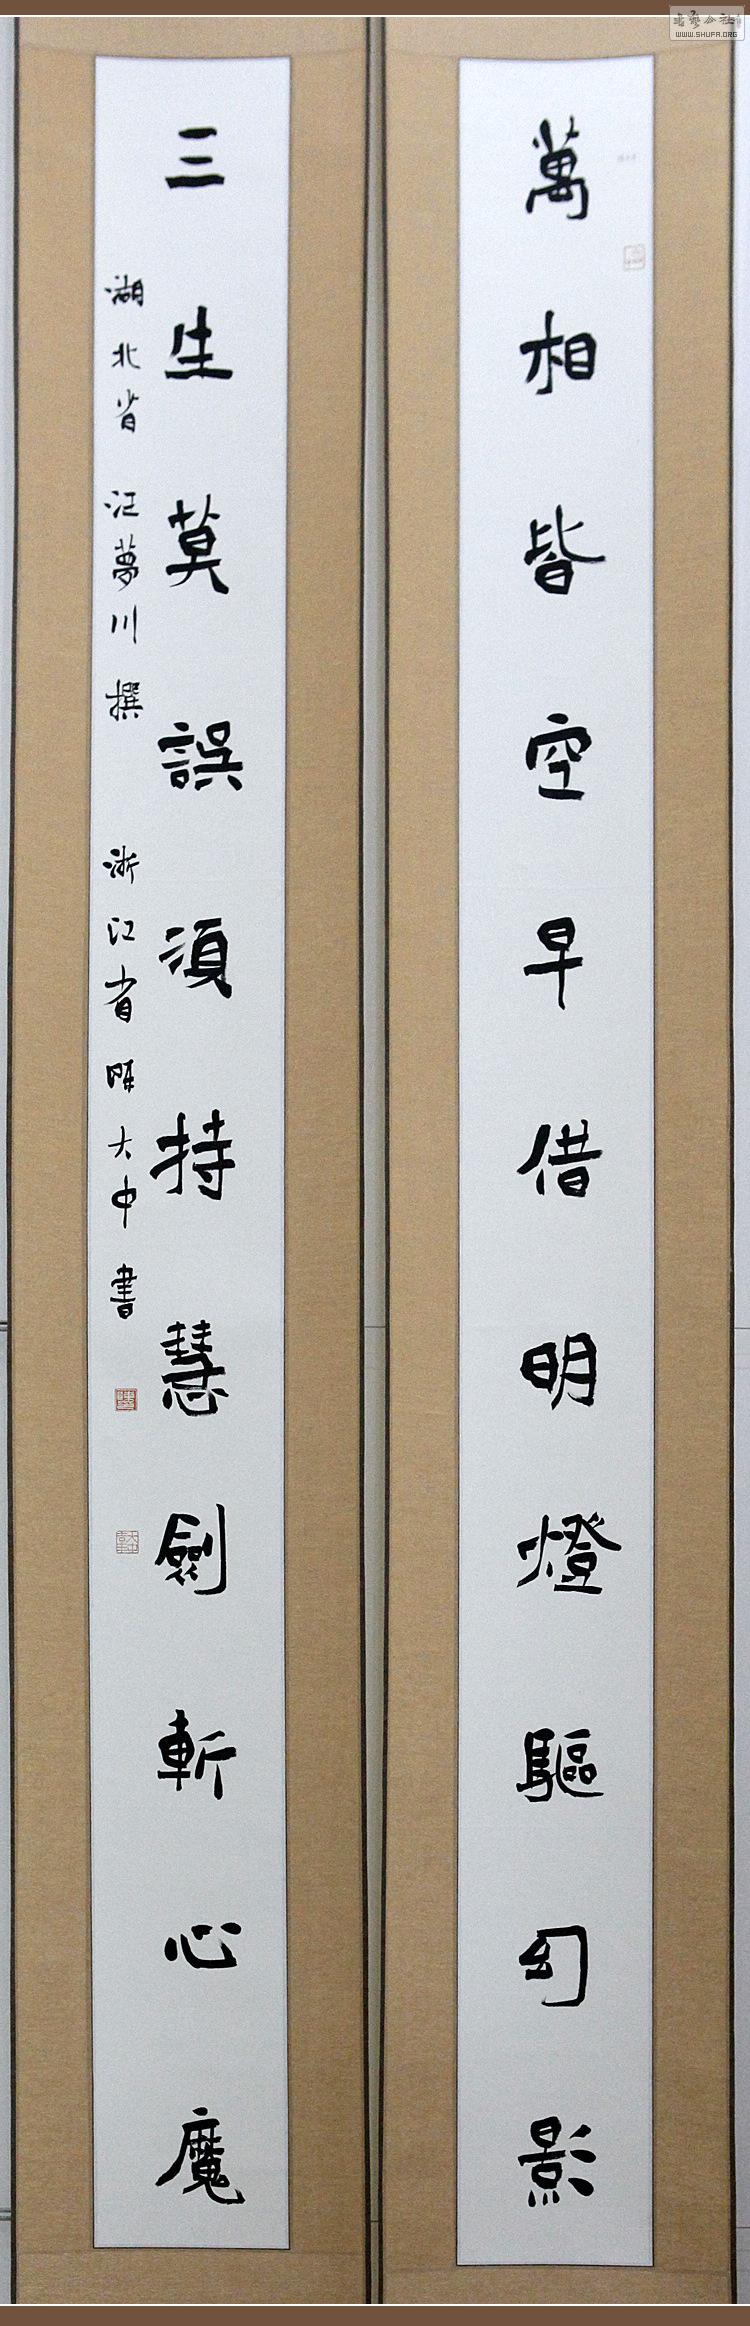 萬相皆空早借明燈驅幻影
三生莫誤須持慧劍斬心魔
湖北省 汪夢川 撰 浙江省 陈大中 書
書藝公社
WWW.SHUFA.ORG